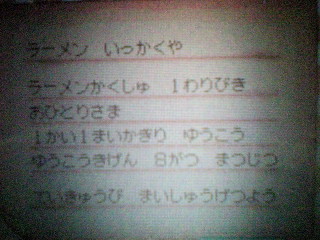 ラーメン　いっかくや
ラーメンかくしゅ　１わりびき
おひとりさま
１かい１まいかぎり　ゆうこう
ゆうこうきげん　８がつ　まつじつ
ていきゅうび　まいしゅうげつよう